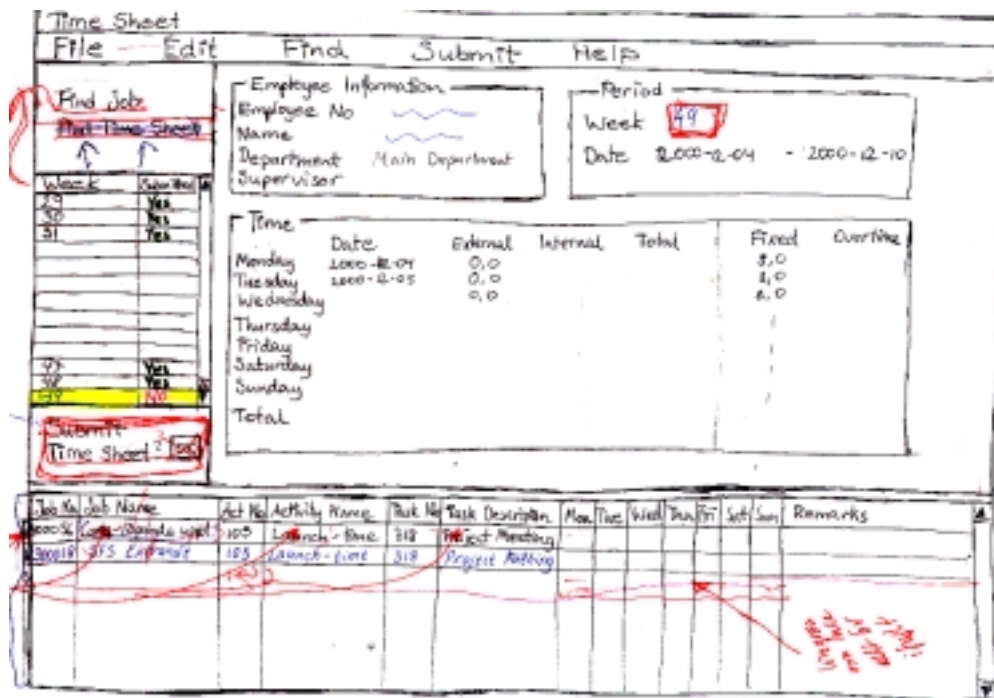 Time Sheet
File Edit Find Submit Help
Find Job
Find Time Sheet
Week
29 Yes
30 Yes
31 Yes
47 Yes
48 Yes
49 NO
Submit
Time Sheet?
Employee Information
Employee No
Name
Department Main Department
Supervisor
Period
Week 49
Date 2000-12-04 - 2000-12-10
Time
Date External Internal Total Fixed Overtime
Monday 2000-12-04 0,0 8,0
Tuesday 2000-12-05 0,0 8,0
Wednesday 0,0 8,0
Thursday
Friday
Saturday
Sunday
Total
Job No Job Name Act No Activity Name Task No Task Description Mon Tue Wed Thu Fri Sat Sun Remarks
105 Launch-time 318 Project Meeting
105 Launch-time 318 Project